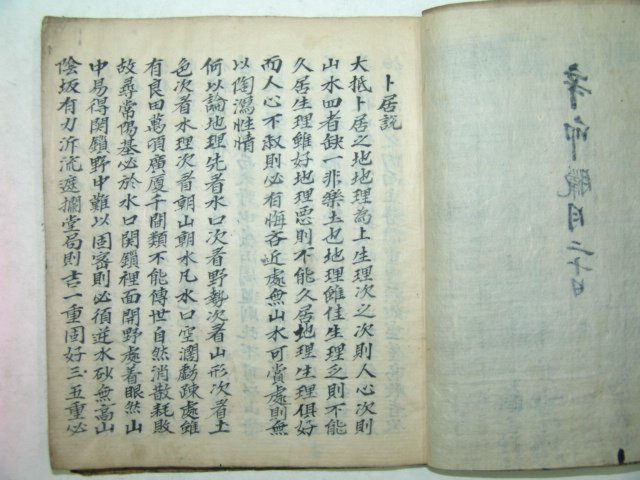 辛卯臘月二十日
卜居説
大抵卜居之地地理為上生理次之次則人心次則
山水四者缺一非樂土也地理雖佳生理乏則不能
久居生理雖好地理惡則不能久居地理生理俱好
而人心不淑則必有悔吝近處無山水可賞處則無
以陶瀉性情
何以論地理先看水口次看野勢次看山形次看土
色次看水理次看朝山朝水凡水口空濶虧疎處雖
有良田萬頃廣廈千間類不能傳世自然消散耗敗
故尋常陽基必於水口関鎖裡面開野處着眼然山
中易得関鎖野中難以固密則必須逆水砂無高山
陰坂有力泝流遮攔堂局則吉一重固好三五重必